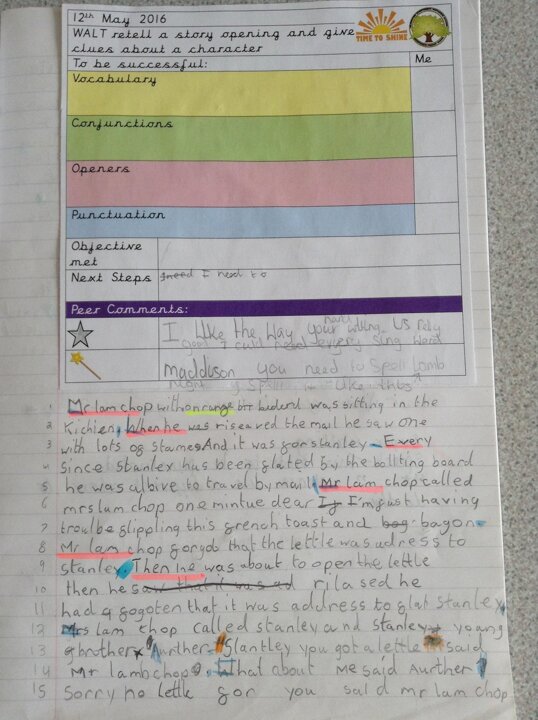 12th May 2016
WALT retell a story opening and give
clues about a character
TIME TO SHINE
To be successful:
Me
Vocabulary
Conjunctions
Openers
Punctuation
Objective
met
Next Steps
I need to
Peer Comments:
I like the way your hand writing is
good I could read every sing word
maddison you need to spell lamb
like this
1 Mr lam chop with onrange was sitting in the
2 Kichien, When he was riseaved the mail he saw one
3 with lots of stames And it was for stanley. Every
4 Since stanley has been flated by the bollting board
5 he was albive to travel by mail. Mr lam chop called
6 mrs lam chop one mintue dear I'm just having
7 troulbe flipping this french toast and bagon
8 Mr lam chop forgob that the lettle was adress to
9 stanley. Then he was about to open the lettle
10 then he saw that it was ad rila sed he
11 had a fogoten that it was address to flat stanley,
12 Mrs lam chop called stanley and stanleys young
13 brother Aurther. Slantley you got a lettle said
14 Mr lamb chop. What about me said Aurther
15 Sorry no lettle for you said mr lam chop